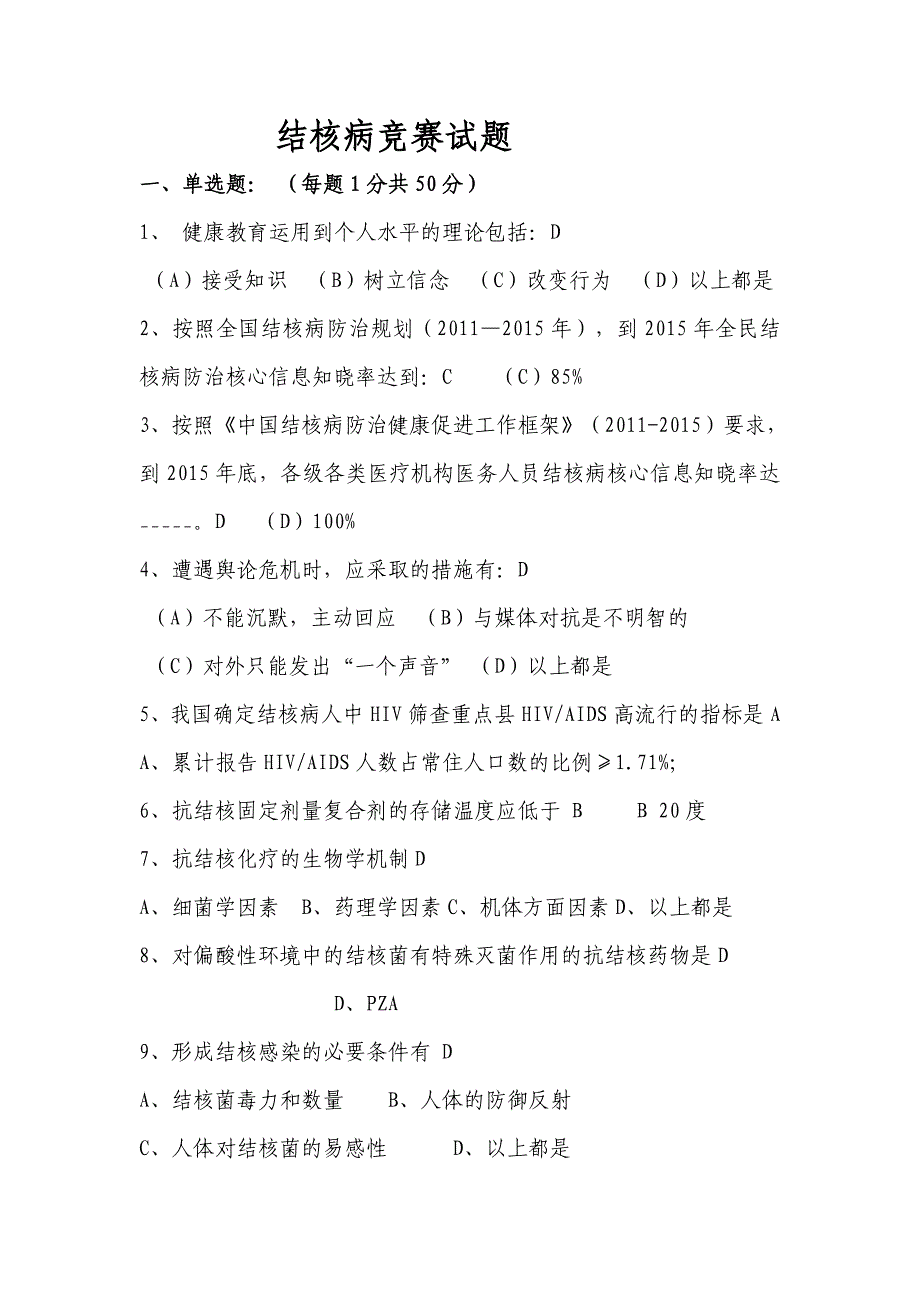 结核病竞赛试题
一、单选题： （每题1分共50分）
1、 健康教育运用到个人水平的理论包括：D
（A）接受知识 （B）树立信念 （C）改变行为 （D）以上都是
2、按照全国结核病防治规划（2011—2015年），到2015年全民结
核病防治核心信息知晓率达到：C （C）85%
3、按照《中国结核病防治健康促进工作框架》（2011-2015）要求，
到2015年底，各级各类医疗机构医务人员结核病核心信息知晓率达
_____。D （D）100%
4、遭遇舆论危机时，应采取的措施有：D
（A）不能沉默，主动回应 （B）与媒体对抗是不明智的
（C）对外只能发出“一个声音” （D）以上都是
5、我国确定结核病人中HIV筛查重点县HIV/AIDS高流行的指标是A
A、累计报告HIV/AIDS人数占常住人口数的比例≥1.71%;
6、抗结核固定剂量复合剂的存储温度应低于 B B 20度
7、抗结核化疗的生物学机制D
A、细菌学因素 B、药理学因素C、机体方面因素D、以上都是
8、对偏酸性环境中的结核菌有特殊灭菌作用的抗结核药物是D
D、PZA
9、形成结核感染的必要条件有 D
A、结核菌毒力和数量 B、人体的防御反射
C、人体对结核菌的易感性 D、以上都是